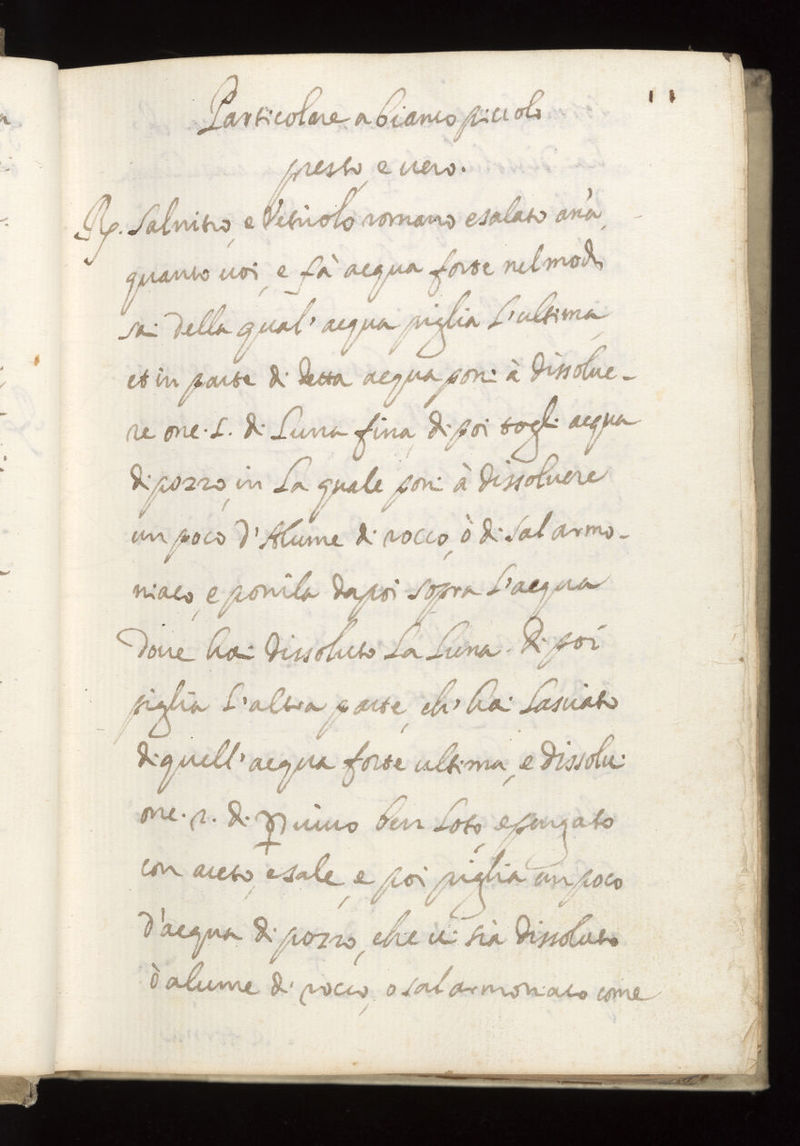 11
Particolare a bianco piccolo
presto, e vero.
Rp. Salnitro, e Vetriolo romano esalato anà,
quanto voi, e fà acqua forte nel modo
sai della qual' acqua piglia L'ultima,
et in parte di detta acqua poni à dissolve-
re one. L. di Luna fina, di poi togli acqua
di pozzo, in La quale poni à dissolvere
un poco d'Alume di rocco, ò di Sal armo-
niaco, e ponila dapoi sopra L'acqua
dove hai dissoluto La Luna. di poi
piglia L'altra parte, ch' hai Lasciato
di quell' acqua forte ultima, e dissolvi
one. 2. di ☿ vivo ben Loto, e purgato
con aceto, e sale, e poi piglia un poco
d'acqua di pozzo, che vi sia dissoluto
ò alume di rocco, o sal armoniaco come